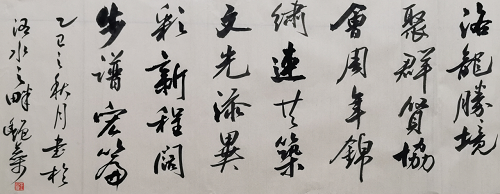 洛龍勝境
聚群賢協
會周年錦
繡連共築
文光添異
彩新程闊
步譜宏篇
乙巳之秋月書於
洛水之畔